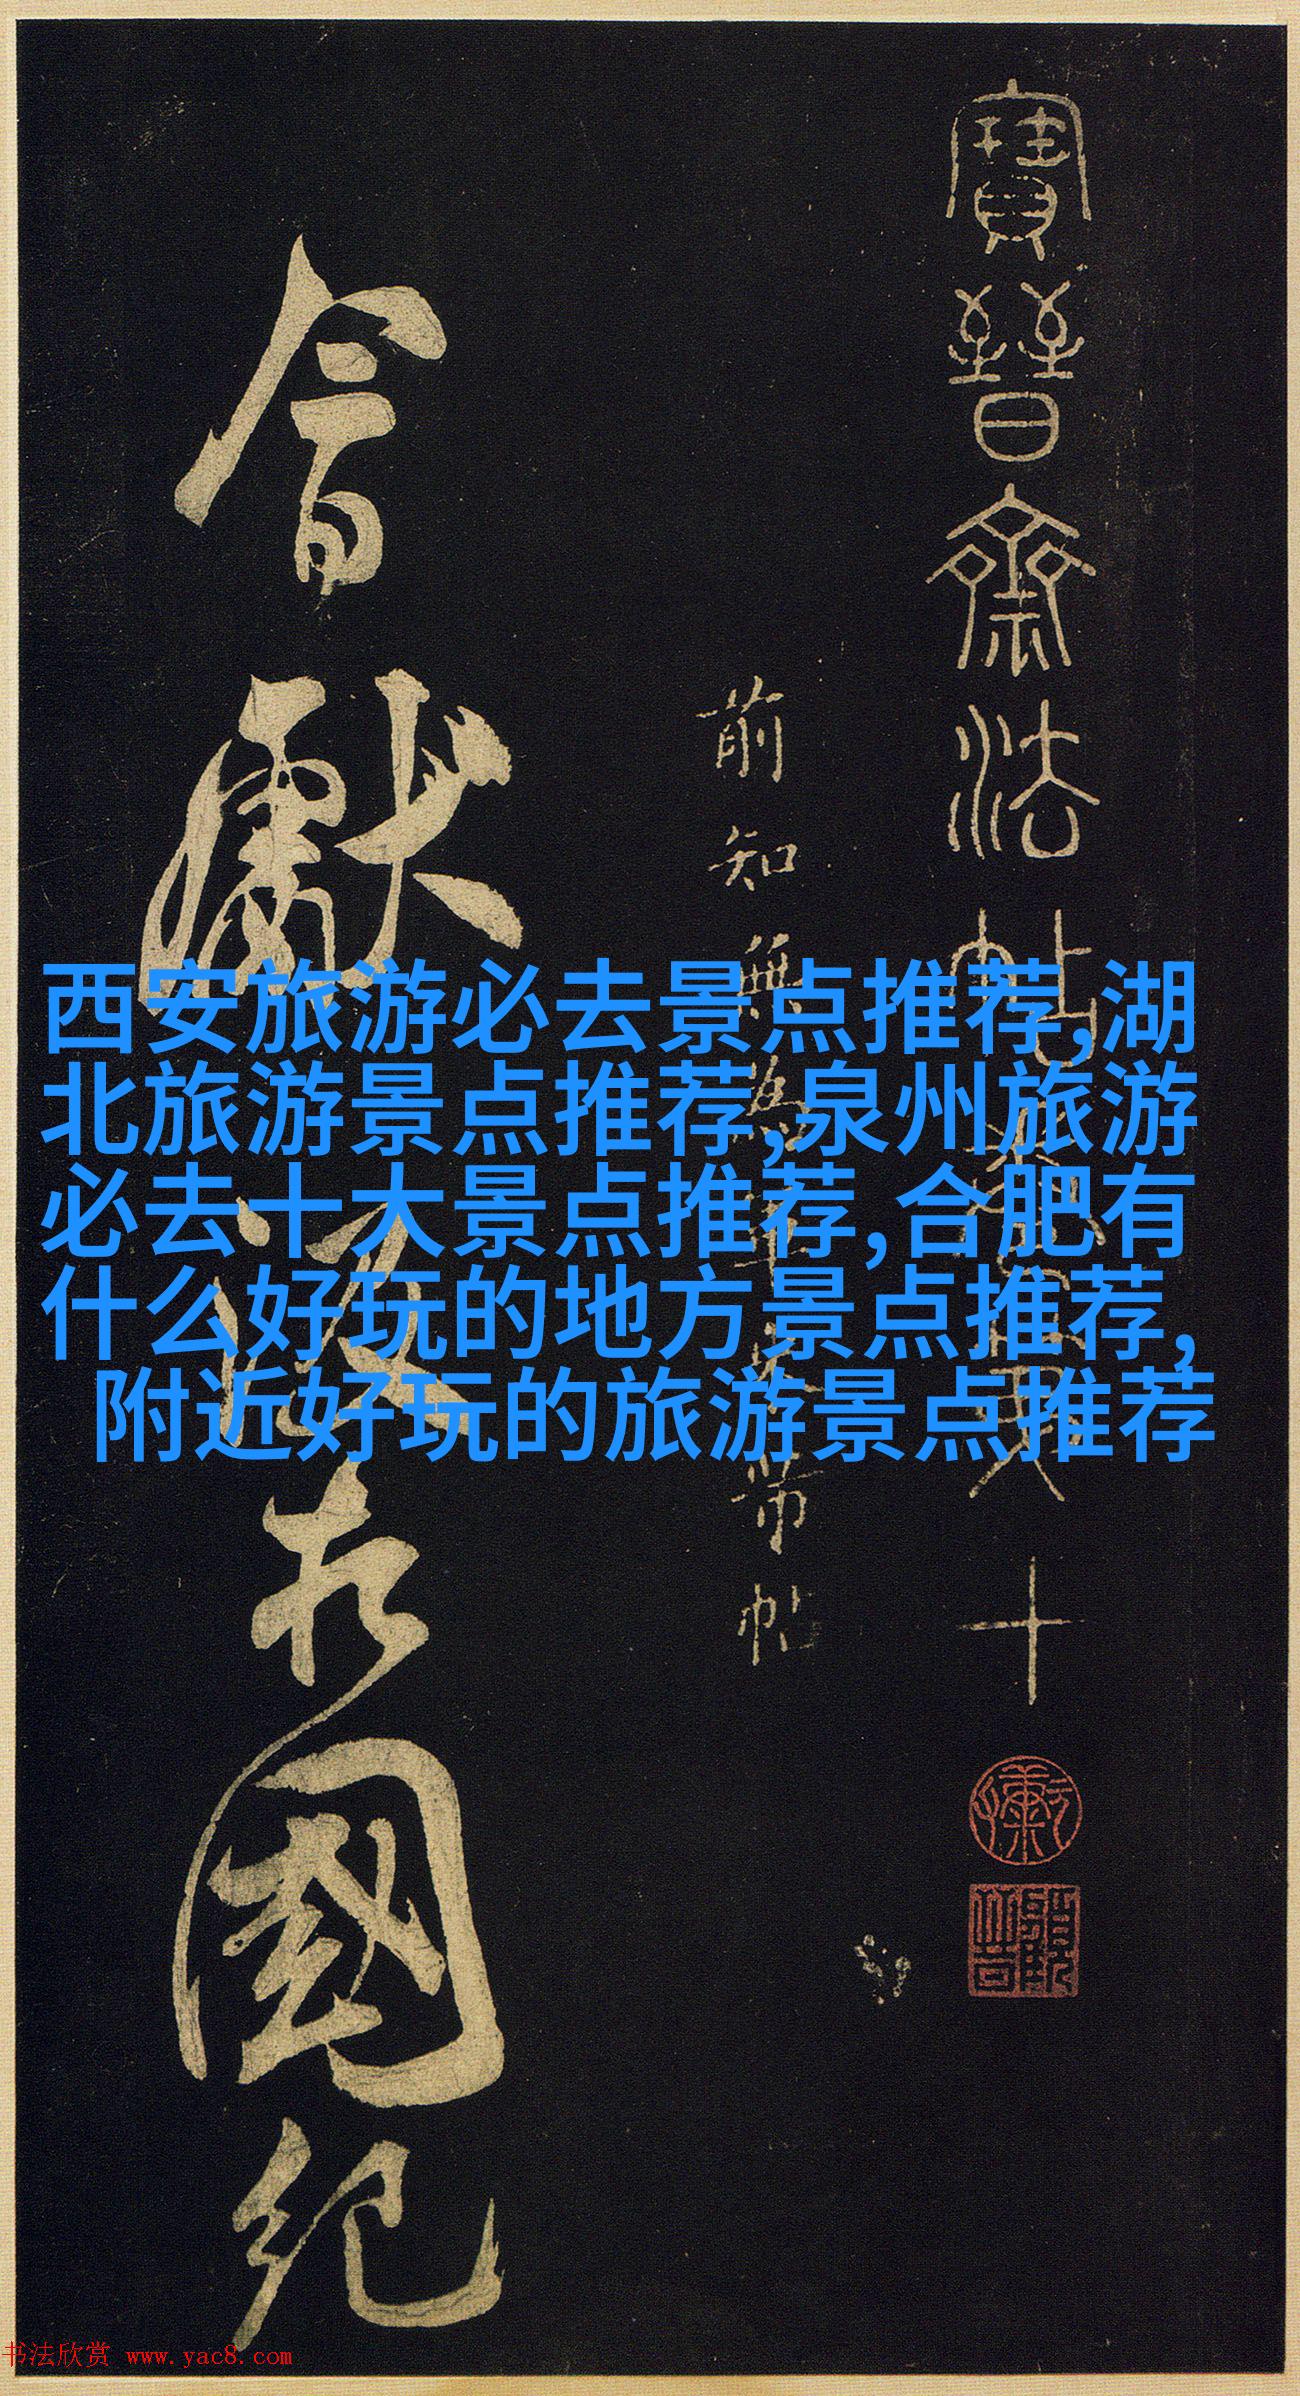 寶晉齋法帖第十
前知無為軍米芾帖
獻
國紀
西安旅游必去景点推荐,湖
北旅游景点推荐,泉州旅游
必去十大景点推荐,合肥有
什么好玩的地方景点推荐,
附近好玩的旅游景点推荐
书法欣赏 www.yac8.com